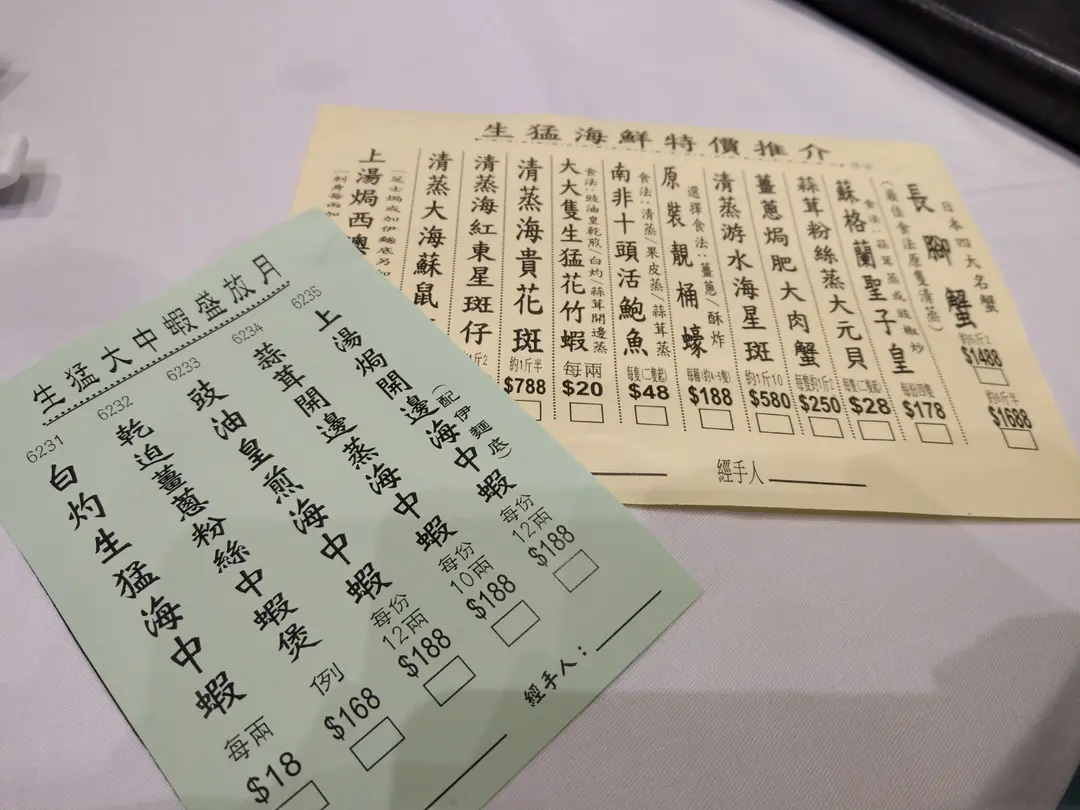 生猛大中蝦盛放月
6231
白灼生猛海中蝦
每兩
$18
6232
乾迫薑蔥粉絲中蝦煲
例
$168
6233
豉油皇煎海中蝦
每份
12兩
$188
6234
蒜茸開邊蒸海中蝦
每份
10兩
$188
6235
上湯焗開邊海中蝦
(配伊麵底)
每份
12兩
$188
經手人：
生猛海鮮特價推介
日本四大名蟹
長腳蟹
(最佳食法原隻清蒸)
$1488
$1688
蘇格蘭聖子皇
食法：蒜茸蒸或豉椒炒
每份四隻
$178
蒜茸粉絲蒸大元貝
每隻(二隻起)
$28
薑蔥焗肥大肉蟹
每隻約1斤2
$250
清蒸游水海星斑
約1斤10
$580
原裝靚桶蠔
選擇食法：薑蔥/酥炸
$188
南非十頭活鮑魚
食法：清蒸/果皮蒸/蒜茸蒸
每隻(二隻起)
$48
大大隻生猛花竹蝦
食法：豉油皇乾煎/白灼/蒜茸開邊蒸
每兩
$20
清蒸海貴花斑
約1斤半
$788
清蒸海紅東星斑仔
清蒸大海蘇鼠
上湯焗西澳
經手人